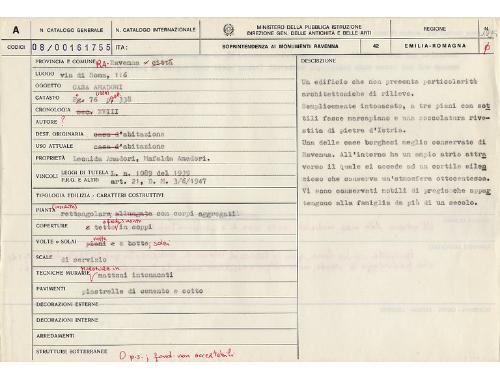 A
N. CATALOGO GENERALE
N. CATALOGO INTERNAZIONALE
MINISTERO DELLA PUBBLICA ISTRUZIONE
DIREZIONE GEN. DELLE ANTICHITÀ E DELLE ARTI
REGIONE
N.
CODICI
08/00161755
ITA:
SOPRINTENDENZA AI MONUMENTI RAVENNA
42
EMILIA-ROMAGNA
PROVINCIA E COMUNE: RA-Ravenna città
LUOGO via di Roma, 116
OGGETTO CASA AMADORI
CATASTO Fg. 76 338
CRONOLOGIA sec. XVIII
AUTORE ?
DEST. ORIGINARIA casa d'abitazione
USO ATTUALE casa d'abitazione
PROPRIETÀ Leonida Amadori, Mafalda Amadori.
VINCOLI LEGGI DI TUTELA L. n. 1089 del 1939
P.R.G. E ALTRI art. 21, D. M. 3/6/1947
TIPOLOGIA EDILIZIA - CARATTERI COSTRUTTIVI
PIANTA rettangolare allungata con corpi aggregati
COPERTURE a tetto in coppi
VOLTE o SOLAI piani e a botte; solai
SCALE di servizio
TECNICHE MURARIE mattoni intonacati
PAVIMENTI piastrelle di cemento e cotto
DECORAZIONI ESTERNE
DECORAZIONI INTERNE
ARREDAMENTI
STRUTTURE SOTTERRANEE
DESCRIZIONE
Un edificio che non presenta particolarità
architettoniche di rilievo.
Semplicemente intonacato, a tre piani con sot
tili fasce marcapiano e una zoccolatura rive-
stita di pietra d'Istria.
Una delle case borghesi meglio conservate di
Ravenna. All'interno ha un ampio atrio attra-
verso il quale si accede ad un cortile silen
zioso che conserva un'atmosfera ottocentesca.
Vi sono conservati mobili di pregio che appar
tengono alla famiglia da più di un secolo.